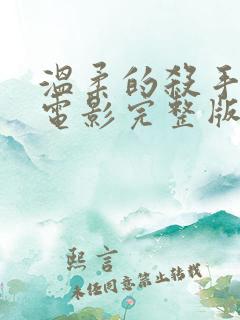 溫柔的殺手
電影完整版
熙言
未任同意禁止转载